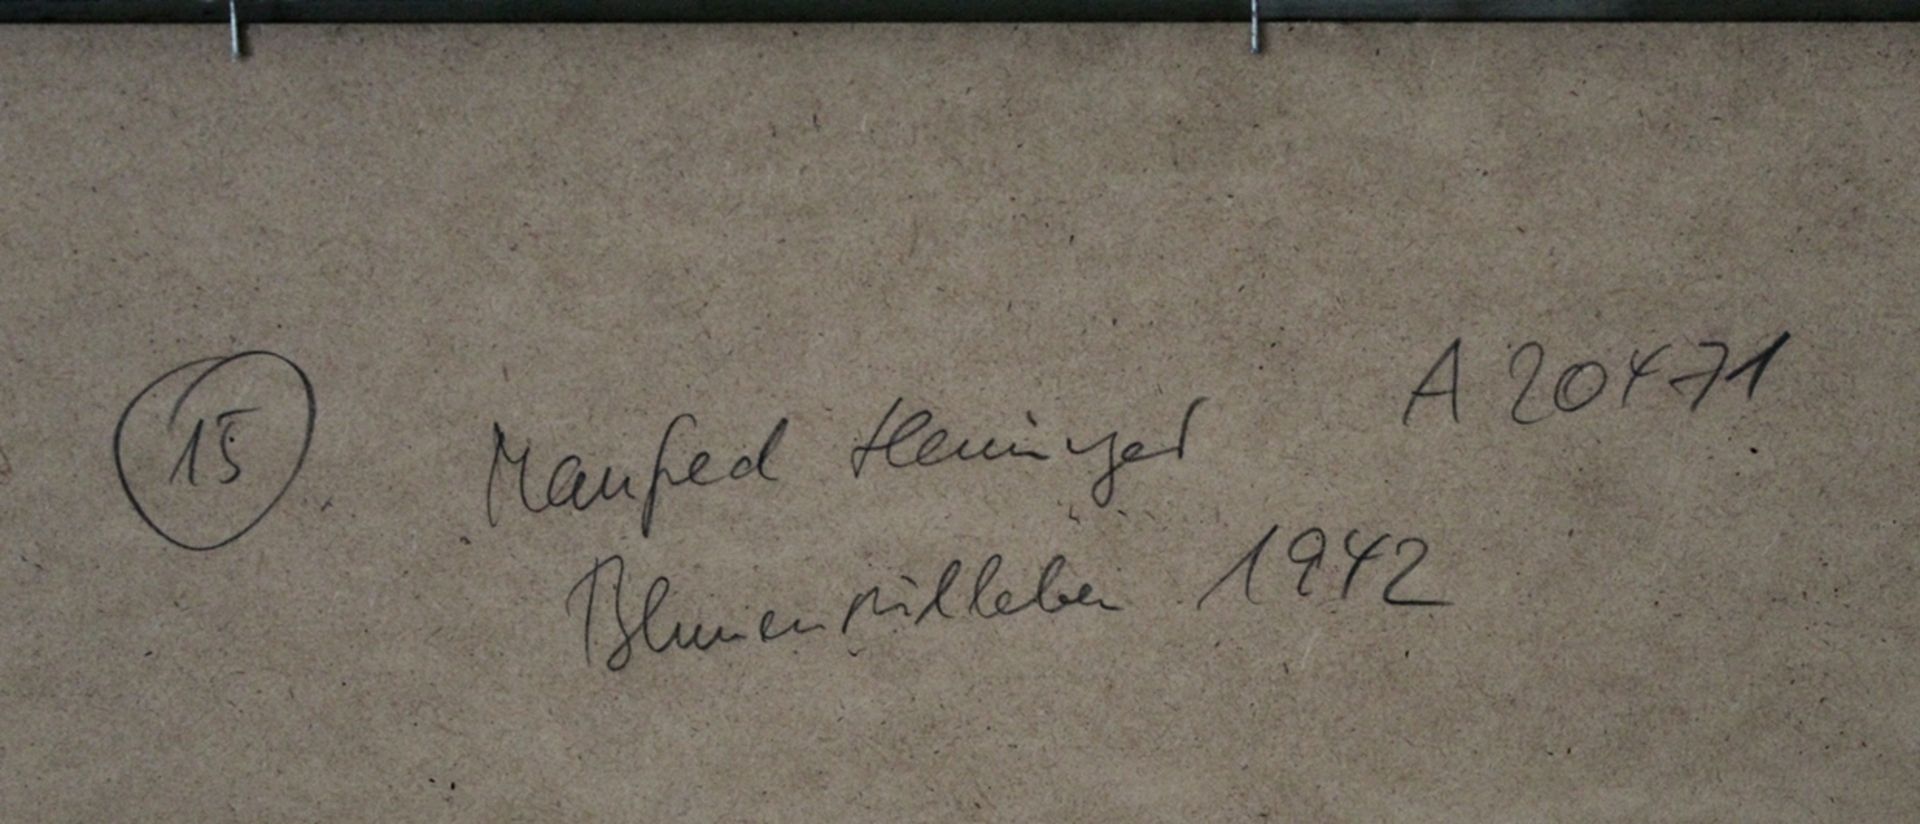 15 Manfred Henninger A 20471
Blumenstilleben 1942